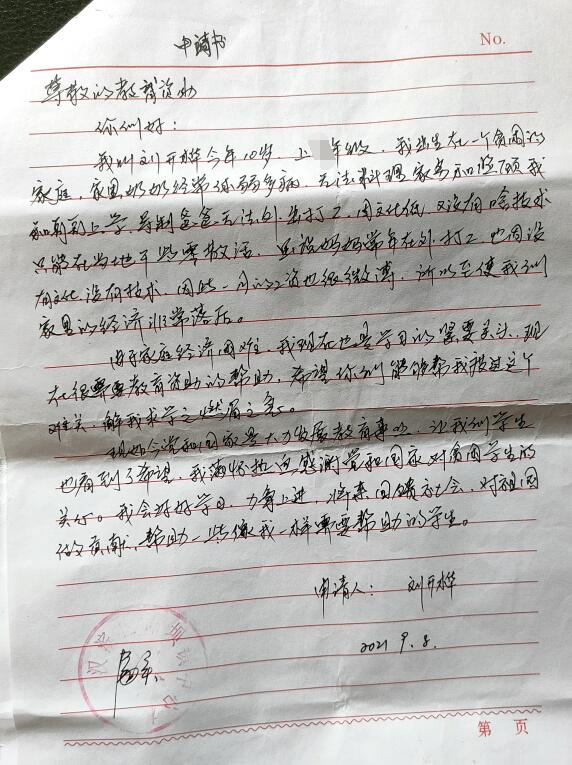 申请书
No.
尊敬的教育资助
你们好：
我叫刘开桦今年10岁，上 年级，我出生在一个贫困的
家庭，家里奶奶经常体弱多病，无法料理家务和照顾我
和 上学，导制爸爸无法外出打工，因文化低，又没有啥技术
只能在当地干些零散活，虽说妈妈常年在外打工，也因没
有文化没有技术，因此一月的工资也很微薄，所以至使我们
家里的经济非常落后。
由于家庭经济困难，我现在也是学习的紧要关头，现
在很需要教育资助的帮助，希望你们能够帮我被过这个
难关，解我求学之燃眉之急。
现如今党和国家是大力发展教育事业，让我们学生
也看到了希望，我满怀热血感谢党和国家对贫困学生的
关心。我会好好学习，力争上进，将来回馈社会，对祖国
做贡献，帮助一些像我一样需要帮助的学生。
申请人：刘开桦
2021 9. 8.
第 页